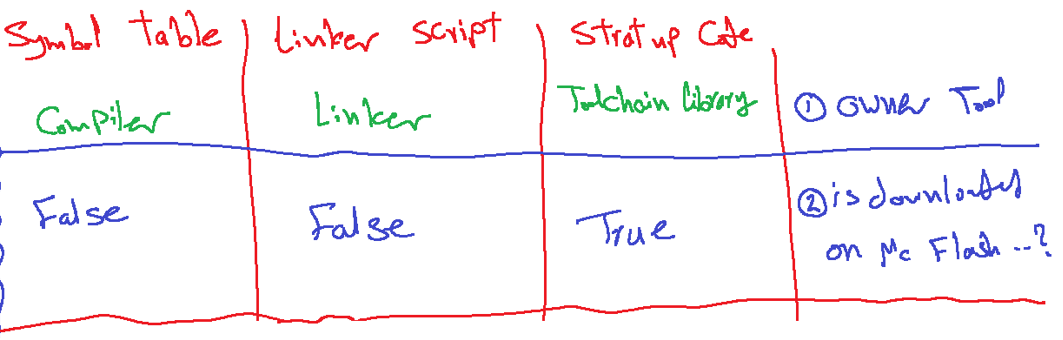 Symbol Table Linker Script Stratup Code
Compiler Linker Toolchain library ① owner Tool
False False True ② is downloaded
on Mc Flash ..?